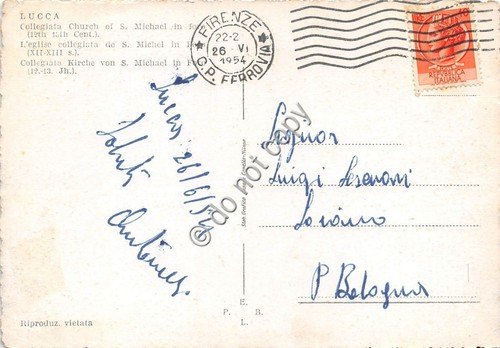 LUCCA
Collegiata Church of S. Michael in
(12th 13th Cent.)
L'eglise collegiata de S. Michel in
(XII-XIII s.)
Collegiata Kirche von S. Michele in
(12.-13. Jh.)
FIRENZE
22-2
26 - VI
1954
C.P. FERROVIA
REPUBBLICA
ITALIANA
Lucca 26/6/54
Saluti
do not copy
Signor
Luigi
Loiano
P Bologna
E.
P. B.
L.
Riproduz. vietata